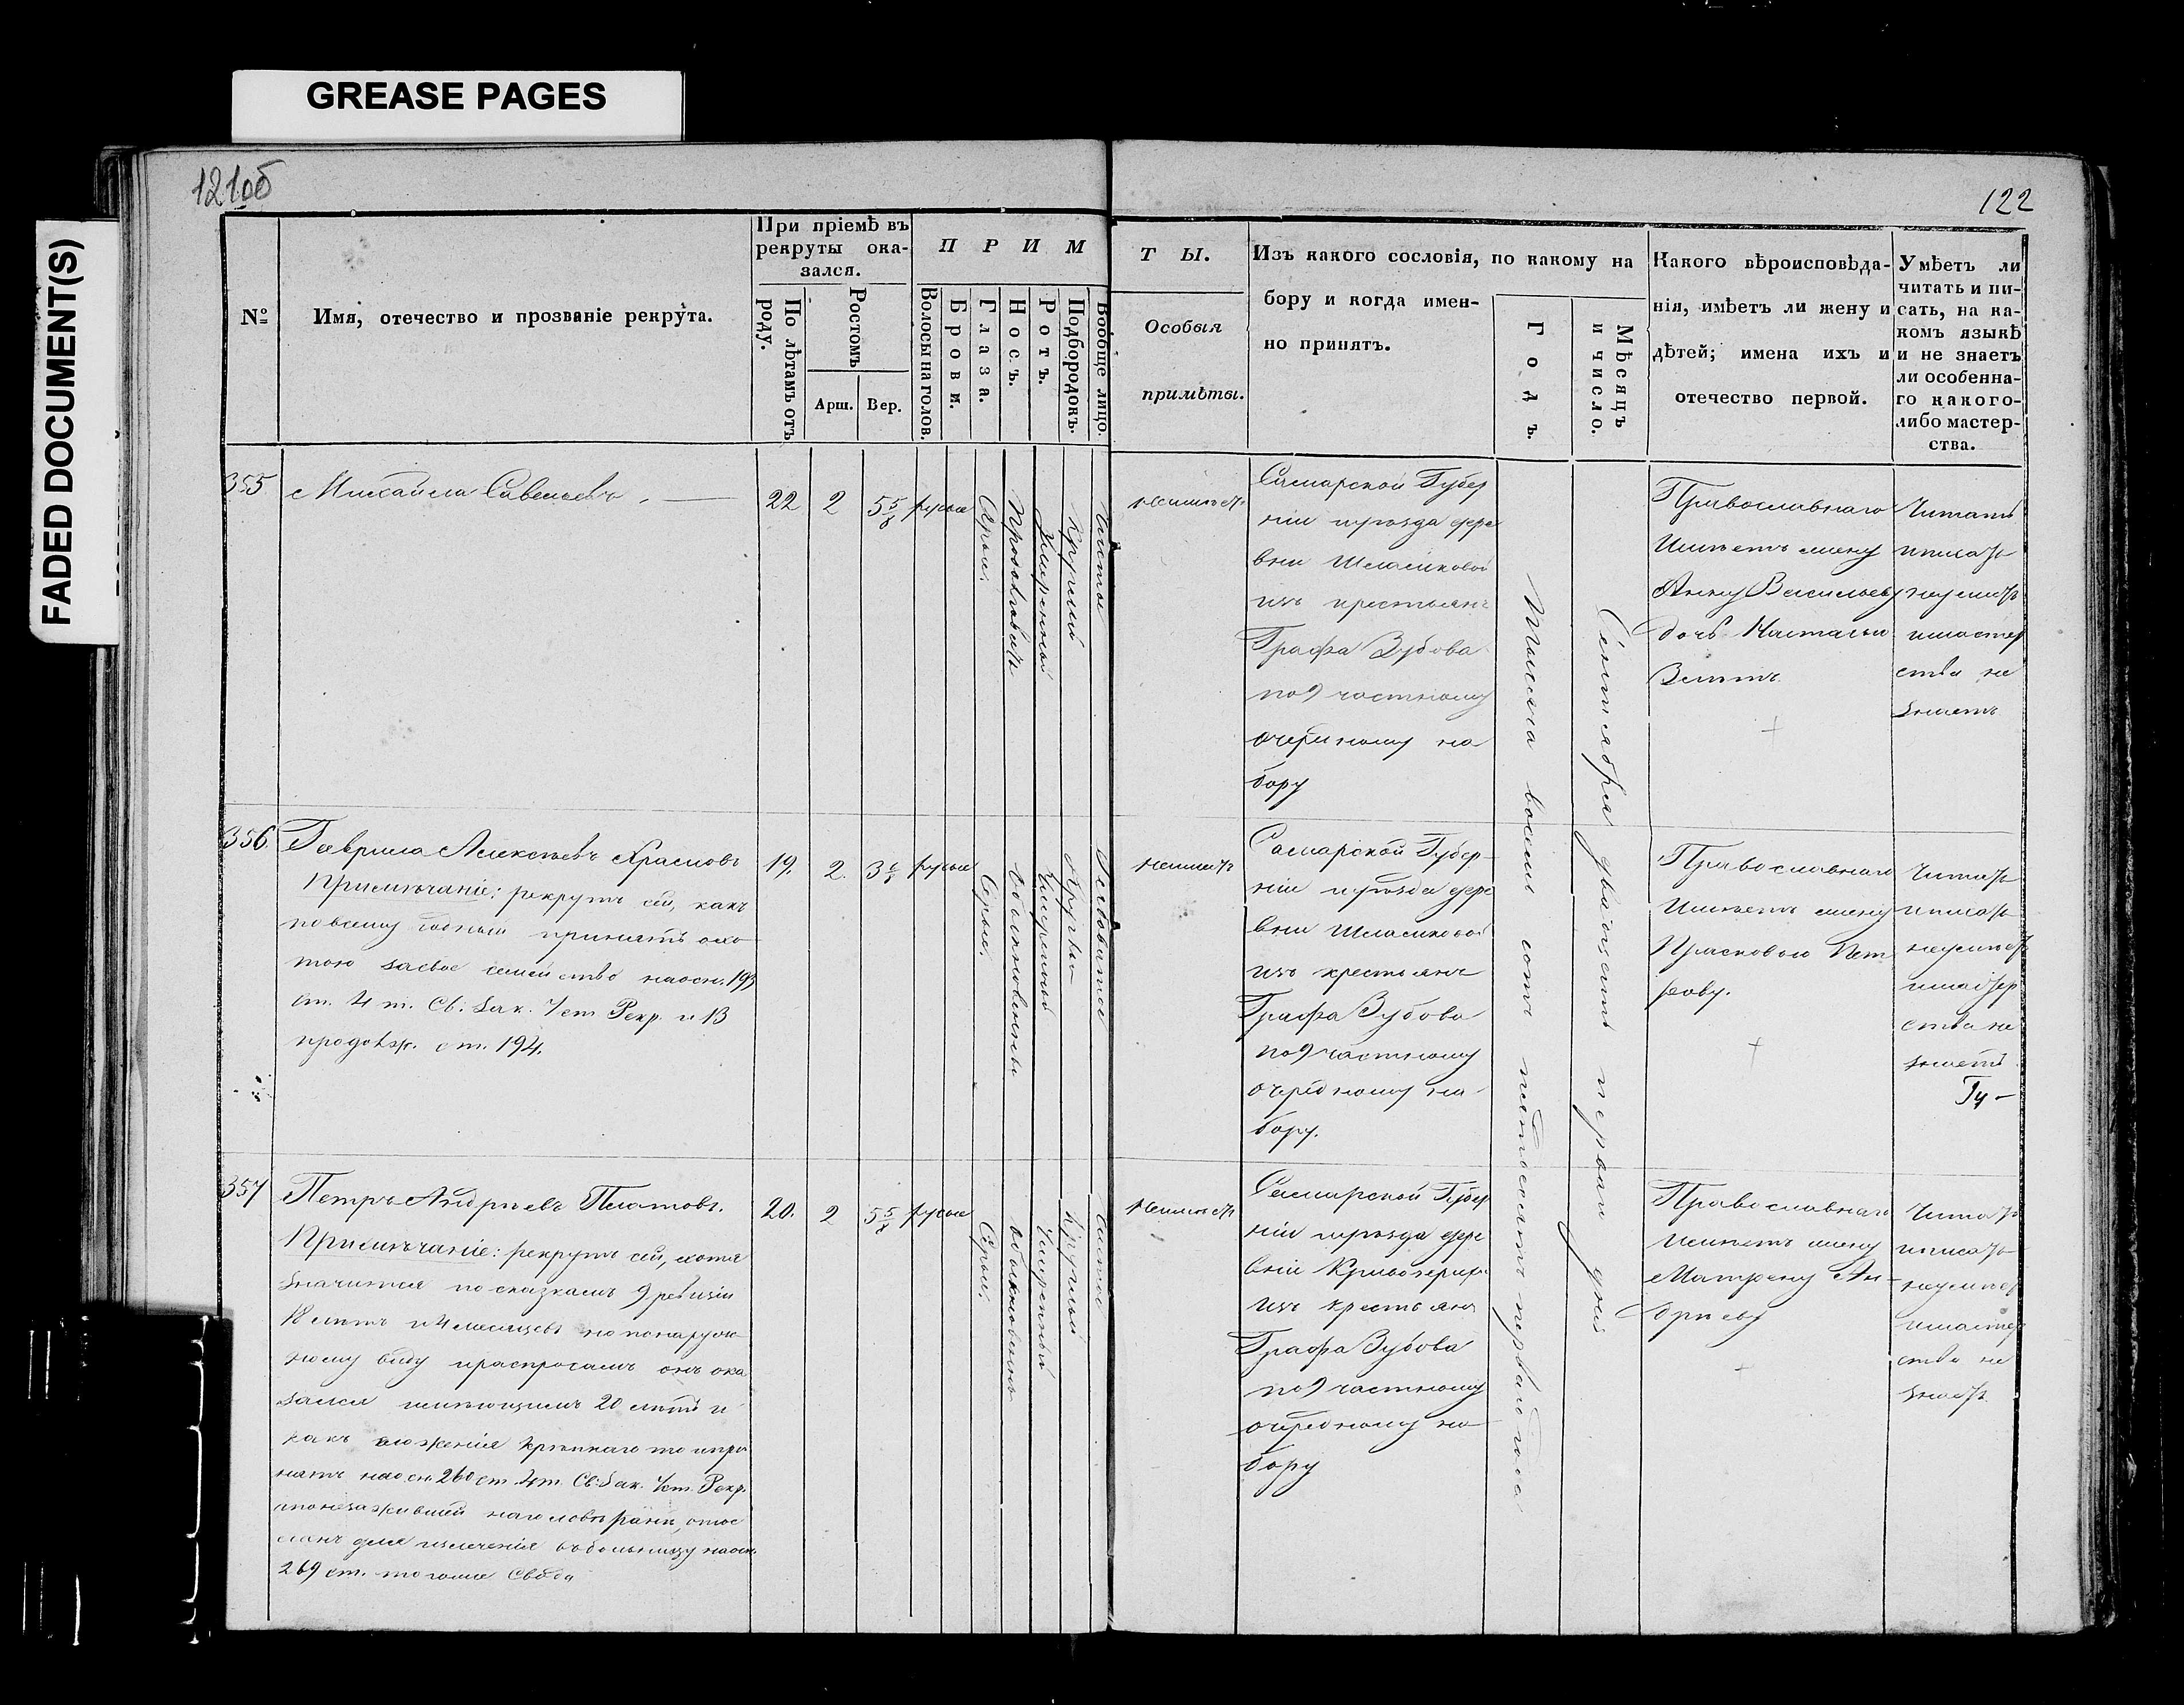 GREASE PAGES
FADED DOCUMENT(S)
121об
122
№
Имя, отечество и прозваніе рекрута.
При пріемѣ въ
рекруты ока-
зался.
По лѣтамъ отъ
роду.
Ростомъ
Арш.
Вер.
П Р И М
Волосы на голов.
Брови.
Глаза.
Носъ.
Ротъ.
Подбородокъ.
Вообще лицо.
Т Ы.
Особыя
примѣты.
Изъ какого сословія, по какому на
бору и когда имен-
но принятъ.
Годъ.
Мѣсяцъ
и число.
Какого вѣроисповѣда-
нія, имѣетъ ли жену и
дѣтей; имена ихъ и
отечество первой.
Умѣетъ ли
читать и пи-
сать, на ка-
комъ языкѣ
и не знаетъ
ли особенна-
го какого-
либо мастер-
ства.
355
Михайла Савельевъ.
22
2
5 5/8
русые
Сѣрые
Продолговатъ
Умѣренный
Круглый
Чистое
неимѣетъ
Самарской Губер
ніи иуѣзда дере
вни
изъ крестьянъ
Графа Зубова
по 9 частному
очередному на
бору
Православнаго
Имѣетъ жену
Анну Васильеву
дочь Настасью
2 лѣтъ
Читать
иписать
неумѣетъ
имастер
ства не
знаетъ
356
Гаврила Алексѣевъ Красновъ
Примѣчаніе: рекрутъ сей, какъ
повсему годный принятъ охо
тою засвое семейство наосн. 193
ст. 4 т. Св: Зак. Уст Рекр. и 13
продолж. ст. 194.
19.
2.
русые
Сѣрые
Обыкновенны
Умѣренный
Круглы
Рябоватое
неимѣетъ
Самарской Губер-
ніи иуѣзда дере
вни
изъ крестьянъ
Графа Зубова
по 9 частному
очередному на-
бору.
Православнаго
Имѣетъ жену
Прасковью Пет
рову.
Читать
иписать
неумѣетъ
имастер
ства не
знаетъ
357
Петръ Андреевъ Платовъ.
Примѣчаніе: рекрутъ сей, хотя
значится посказкамъ 9 ревизіи
18 лѣтъ и 4 мѣсяцевъ но понаруж
ному виду ираспросамъ онъ ока
зался имѣющимъ 20 лѣтъ и
какъ сложенія крѣпкаго то ипри
нятъ наосн. 260 ст. 4 т. Св: Зак. Уст. Рекр.
ипонезажившей наголовѣ ранѣ, отос
ланъ для излеченія въбольницу наосн.
269 ст. того же Свода
20.
2
5 5/8
русые
Сѣрые
Обыкновенны
Умѣренный
Круглый
Чистое
Неимѣетъ
Самарской Губер
ніи иуѣзда дере
вни
изъ крестьянъ
Графа Зубова
по 9 частному
очередному на
бору
Православнаго
Имѣетъ жену
Матрену Ан-
дрееву
Читать
иписать
неумѣетъ
имастер
ства не
знаетъ
Тысяча восемь сотъ пятьдесятъ перваго года
Сентября двадцать перваго дня